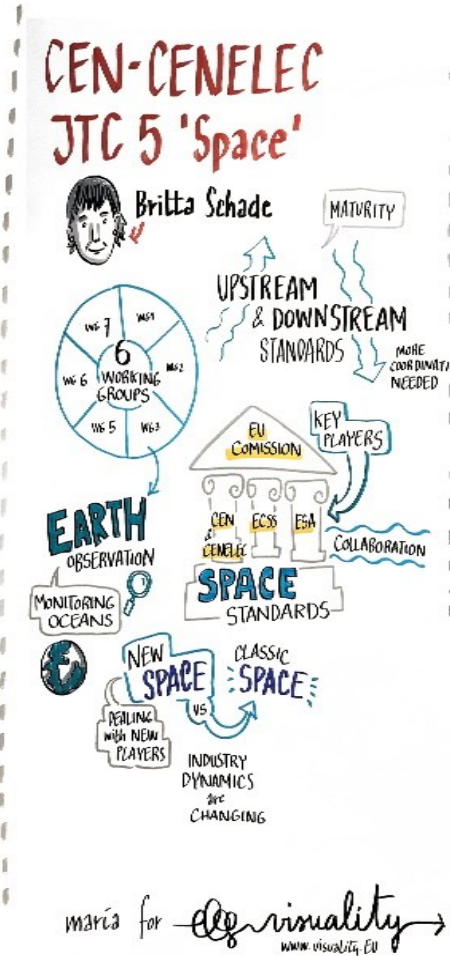 CEN-CENELEC
JTC 5 'Space'
Britta Schade
MATURITY
UPSTREAM
& DOWNSTREAM
STANDARDS
MORE
COORDINATI
NEEDED
WG 7
WG1
WG2
WG3
WG 5
WG 6
6
WORKING
GROUPS
EU
COMISSION
KEY
PLAYERS
CEN
&
CENELEC
ECSS
ESA
COLLABORATION
SPACE
STANDARDS
EARTH
OBSERVATION
MONITORING
OCEANS
NEW
SPACE
VS
CLASSIC
SPACE
DEALING
with NEW
PLAYERS
INDUSTRY
DYNAMICS
are
CHANGING
maría for visuality
www.visuality.EU